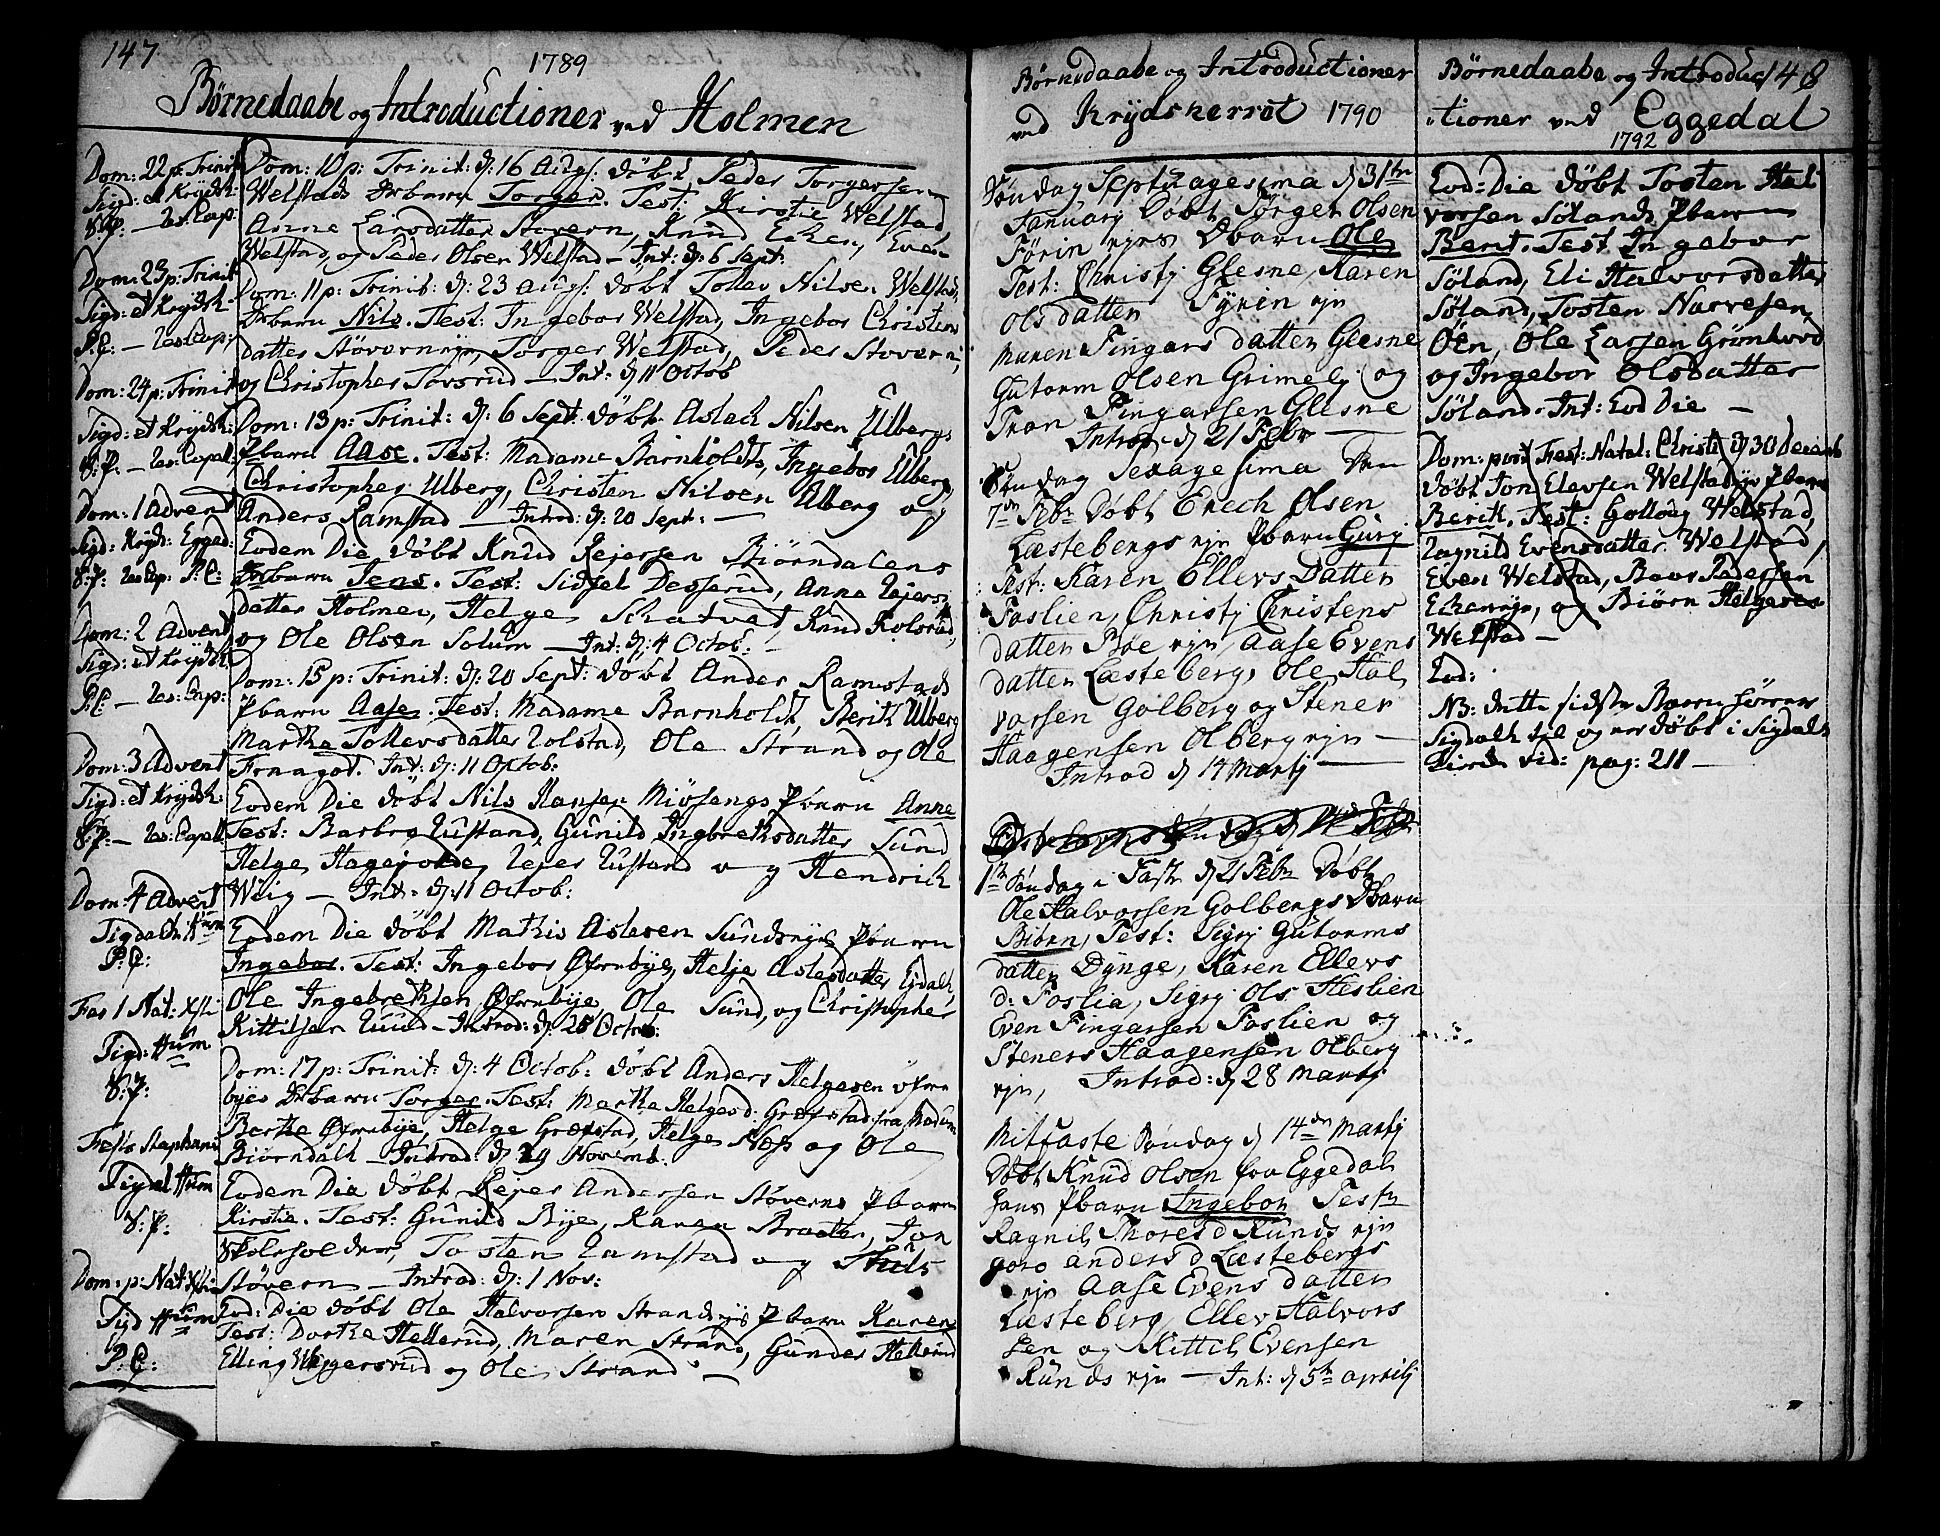 147
1789
Børnedaabe og Introductioner ved Holmen
Dom: 22 p: Trinit
Sigd: et Krydsh:
V:P: — Res: Cap:
Dom: 23 p: Trinit
Sigd: et Krydsh
P:C: — Res: Cap:
Dom: 24 p: Trinit
Sigd: et Krydsh:
V:P: — Res: Capell:
Dom: 1 Advent
Sigd: Krydsh: Egged:
V:P: Res: Cap: P:C:
Dom: 2 Advent
Sigd: et Krydsh
P:C: — Res: Cap:
Dom: 3 Advent
Sigd: et Krydsh:
V:P: — Res: Capell
Dom: 4 Advent
Sigdalh: Hum
P:C:
Fer 1 Nat: Xsti
Sigd: Hum
V:P:
Festo Stephani
Sigdal Hum
V:P:
Dom: p: Nat Xsti
Sigd Hum
P:C:
Dom: 10 p: Trinit: d: 16 Augs: døbt Peder Torgersen
Welstads Drbarn Torger. Test: Kirstie Welstad,
Anne Larsdatter Støvern, Knud Ecker, Even
Welstad, og Peder Olsen Welstad — Int: d: 6 Sept:
Dom: 11 p: Trinit: d: 23 Augs: døbt Toller Nilsen Welstads
Drbarn Nils. Test: Ingebor Welstad, Ingebor Christens
datter Støvernejn, Torger Welstad, Peder Støvern,
og Christopher Tovsrud — Int: d: 11 Octob
Dom: 13 p: Trinit: d: 6 Sept: døbt Aslach Nilsen Ulbergs
Pbarn Aase. Test: Madame Barnholdt, Ingebor Ulberg,
Christopher Ulberg, Christen Nilsen Ulberg og
Anders Ramstad — Introd: d: 20 Sept: —
Eodem Die døbt Knud Rejersen Biørndalens
Drbarn Jens. Test: Sidsel Desserud, Anne Rejers
datter Holmen, Helge Schatvet, Knud Kolsrud,
og Ole Olsen Solum — Int: d: 4 Octob: —
Dom: 15 p: Trinit: d: 20 Sept: døbt Ander Ramstads
Pbarn Aase. Test: Madame Barnholdt, Berith Ulberg
Marthe Tollevsdatter Rolstad, Ole Strand og Ole
Frnagot. Int: d: 11 Octob:
Eodem Die døbt Nils Hansen Miøsengs Pbarn Anne
Test: Barbro Rustand, Gunild Ingbrethsdatter Sund
Helge Hagejorde, Rejer Rustand og Hendrich
Weig — Int: d: 11 Octob:
Eodem Die døbt Mathis Aslesen Sundsejes Pbarn
Ingebor. Test: Ingebor Øfrnbye, Helje Aslesdatter Ejdalh
Ole Ingebrethsen Øfrnbye, Ole Sund, og Christopher
Kittilsen Ruud — Introd: d: 25 Octob:
Dom: 17 p: Trinit: d: 4 Octob: døbt Anders Helgesen Øfrn
byes Drbarn Torger. Test: Marthe Helgesd: Grøfstad fra Modum
Berthe Øfrnbye, Helge Grøfstad, Helge Noss og Ole
Biørndalh — Introd: d: 29 Novemb:
Eodem Die døbt Rejer Andersen Støverns Pbarn
Kirstie. Test: Gunild Bye, Karen Braaten, Jon
Skoleholder, Tosten Ramstad og Niels
Støvern — Introd: d: 1 Nov:
Eod: Die døbt Ole Halvorsen Strandsejs Pbarn Karen
Test: Dorthe Hellerud, Maren Strand, Gunder Hellerud
Elling Wiggersrud og Ole Strand —
Børnedaabe og Introductioner
ved Krydsherret 1790
Søndag Septuagesima d 31te
January Døbt Jørgen Olsen
Førin ejes Dbarn Ole
Test: Christj Glesne, Karen
Olsdatter Fyrin ejn
Maren Fingars datter Glesne
Gutorm Olsen Grimelj og
Tron Fingarsen Glesne
Introd d 21 Febr —
Søndag Sexagesima den
7de Febr døbt Erech Olsen
Læstebergs ejn Pbarn Gurj
Test: Karen Ellevs Datter
Foslien, Christj Christens
datter Bøe ejn, Aase Evens
datter Læsteberg, Ole Hal
vorsen Golberg og Stener
Haagensen Olberg ejn —
Introd d 14 Martj —
1te Søndag i Faste d 21 Febr Døbt
Ole Halvorsen Golbergs Dbarn
Biørn, Test: Sigrj Gutorms
datter Dynge, Karen Ellevs
d: Foslia, Sigrj Ols Heslien
Even Fingarsen Foslien og
Steners Haagensen Olberg
ejn, Introd: d 28 Martj
Mitfaste Søndag d 14de Martj
Døbt Knud Olsen fra Eggedal
hans Pbarn Ingebor Test
Ragnil Thoresd Runds ejn
goro andersd Læstebergs
ejn Aase Evens datter
Læsteberg, Ellev Halvors
sen og Kittil Evensen
Runds ejn — Int: d 5te aprilj
148
Børnedaabe og Introduc
tioner ved Eggedal
1792
Eod: Die døbt Tosten Hal
vorsen Sølands Pbarn
Berit. Test Ingebor
Søland, Eli Halvorsdatter
Søland, Tosten Narvesen
Øen, Ole Larsen Grønhovd
og Ingebor Olsdatter
Søland. Int: Eod Die —
Dom: post Fest: Natal: Christi d 30 Decemb
døbt Jon Elevsen Welstadejs Pbarn
Berith. Test: Gollaug Welstad,
Ragnild Evensdatter Welstad,
Even Welstad, Baar Pedersen
Eckernejn, og Biørn Helgesen
Welstad —
Eod:
NB: dette sidste Barn hører
Sigdalh til og er døbt i Sigdalh
Kirche vid: pag: 211 —